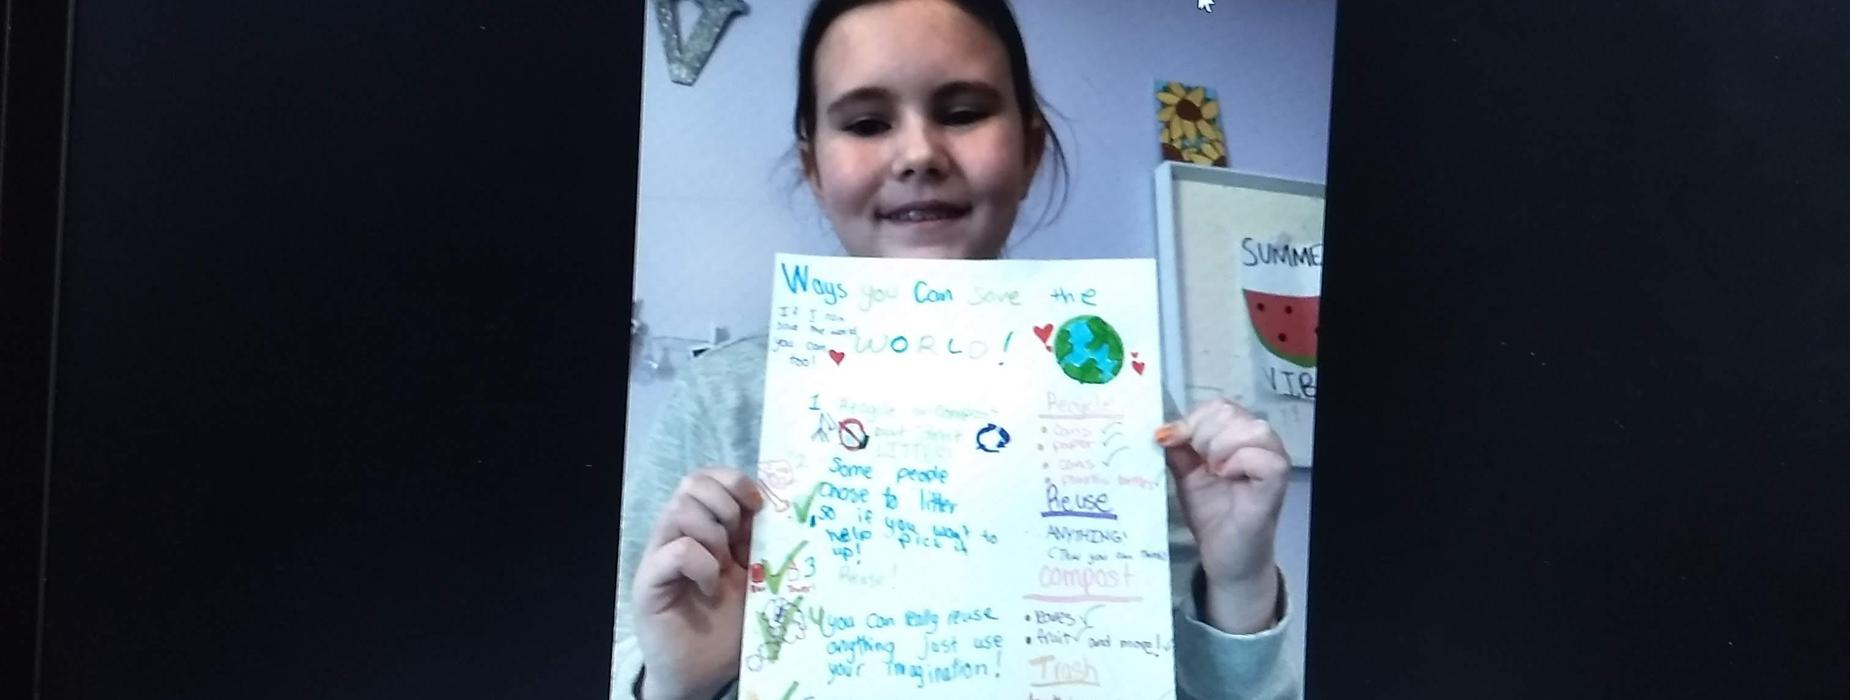 Ways you Can Save the
WORLD!
If I can
save the world
you can
too!
1 Recycle or Compost
but don't
LITTER
2 Some people
chose to litter
so if you want to
help pick it
up!
3 Reuse!
4 you can really reuse
anything just use
your imagination!
Recycle
• cans
• paper
• cans
• plastic bottles
Reuse
ANYTHING!
you can
compost
• fruit and more!
Trash
SUMME
VIB